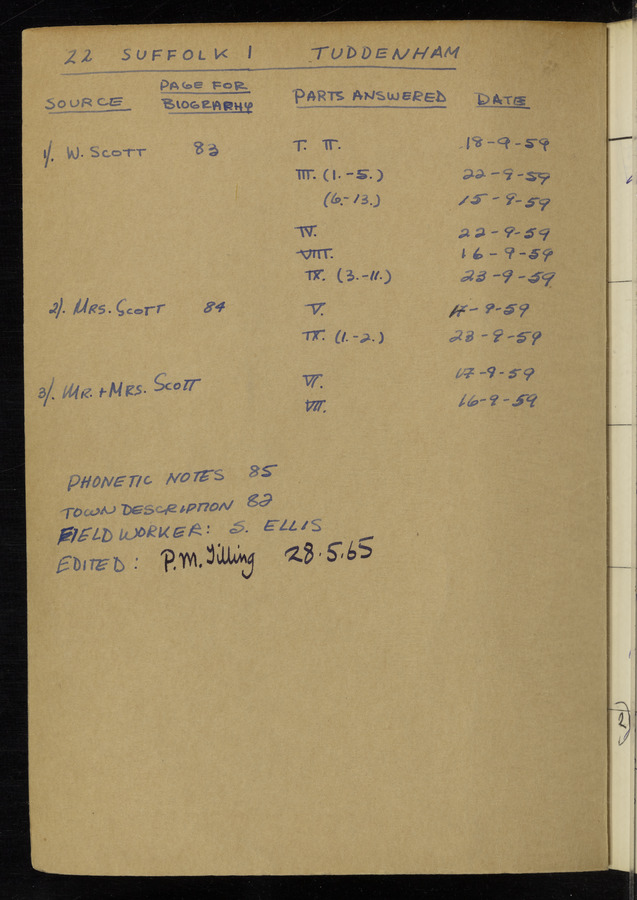 22 SUFFOLK 1 TUDDENHAM
PAGE FOR
SOURCE BIOGRAPHY PARTS ANSWERED DATE
1). W. SCOTT 83 I. II. 18-9-59
III. (1.-5.) 22-9-59
(6.-13.) 15-9-59
IV. 22-9-59
VIII. 16-9-59
IX. (3.-11.) 23-9-59
2). MRS. SCOTT 84 V. 17-9-59
IX. (1.-2.) 23-9-59
3). MR. + MRS. SCOTT VI. 17-9-59
VII. 16-9-59
PHONETIC NOTES 85
TOWN DESCRIPTION 82
FIELD WORKER: S. ELLIS
EDITED: P.M. Tilling 28.5.65
2)